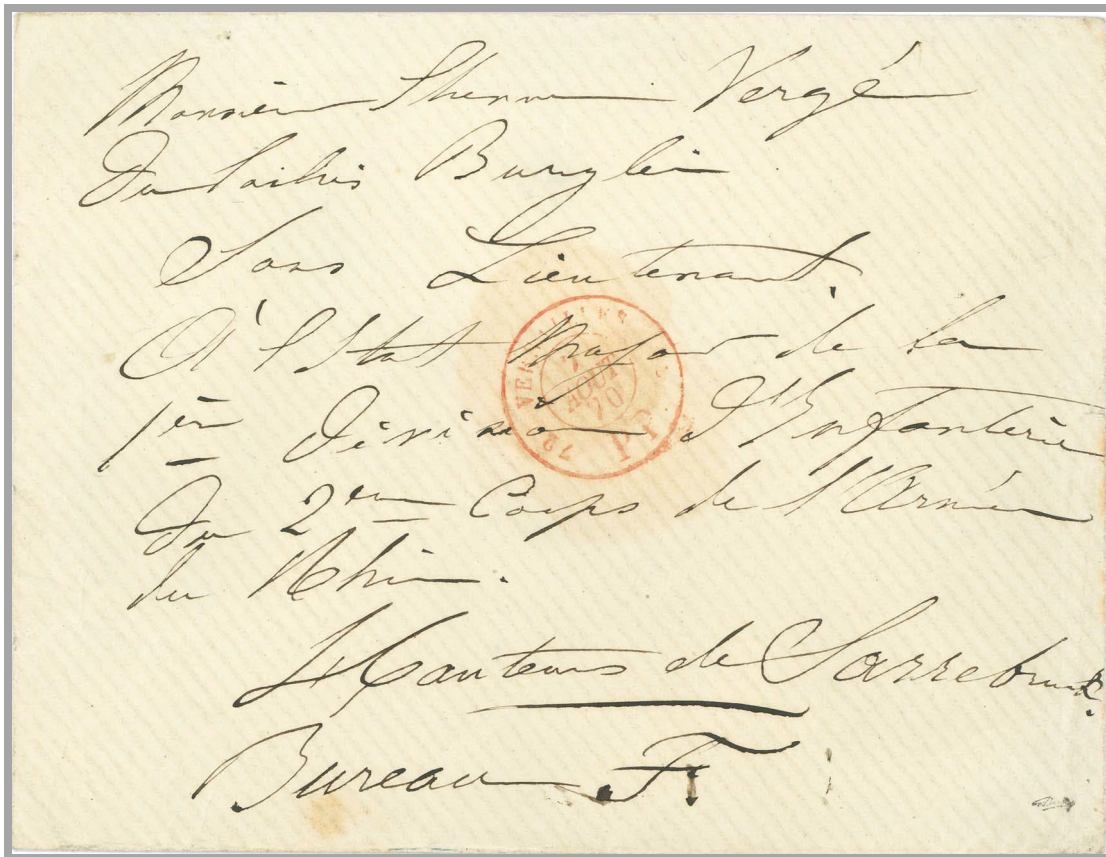 Monsieur Vergé
Du
Sous Lieutenant.
à l'Etat Major de la
1ère Division d'Infanterie
Du 2ème Corps de l'Armée
du Rhin.
Hauteurs de Sarrebruck.
Bureau F.
VERSAILLES
7
AOUT
70
72